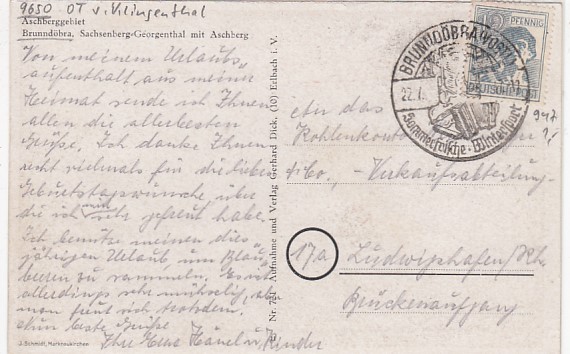 9650 OT v. Klingenthal
Aschberggebiet
Brunndöbra, Sachsenberg-Georgenthal mit Aschberg
Von meinem Urlaubs-
aufenthalt aus meiner
Heimat sende ich Ihnen
allen die allerbesten
Grüße. Ich danke Ihnen
recht vielmals für die lieben
Geburtstagswünsche, über
die ich mich sehr gefreut habe.
Ich benutze meinen dies-
jährigen Urlaub um Blau-
beeren zu sammeln. Es ist
allerdings sehr mühselig, aber
man freut sich trotzdem.
Nun beste Grüße
Ihre Hanel u. Kinder
J. Schmidt, Markneukirchen
Nr. 724 Aufnahme und Verlag Gerhard Dick, (10) Erlbach i. V.
12 PFENNIG
DEUTSCHE POST
BRUNNDÖBRA (VOGTL)
22.7.
Sommerfrische · Wintersport
947
An das
Kohlenkontor
& Co., - Verkaufsabteilung -
17a
Ludwigshafen/Rh.
Brückenaufgang